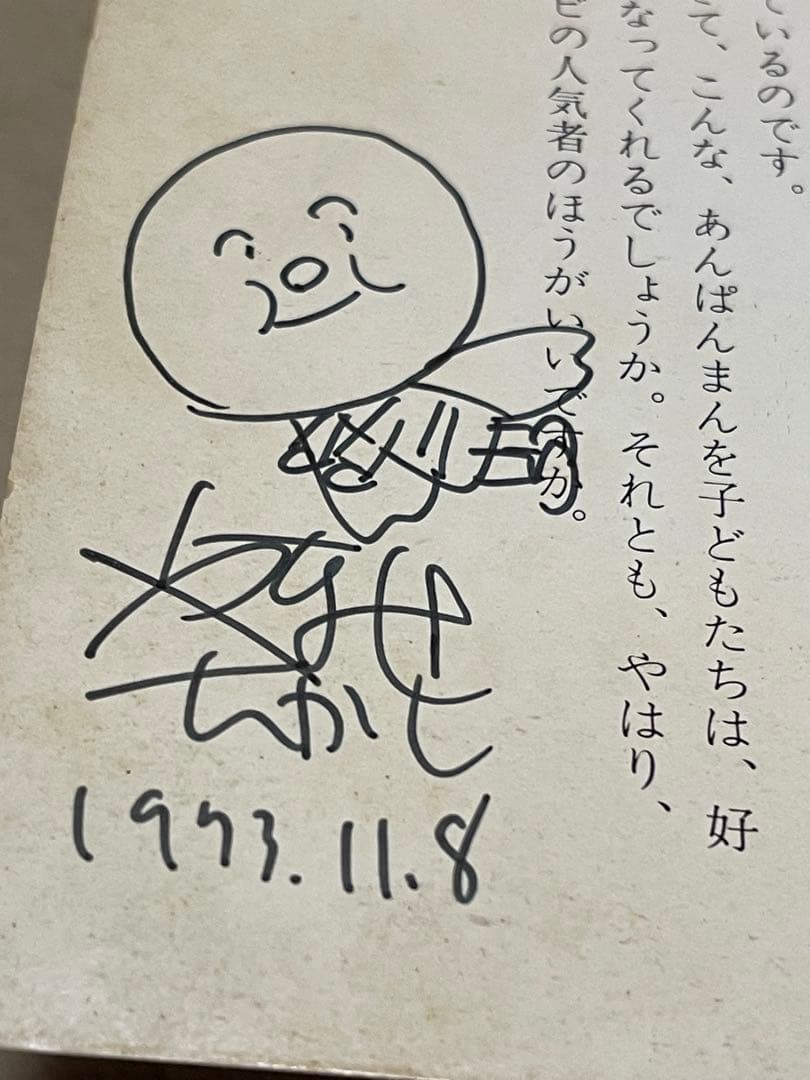 いるのです。
て、こんな、あんぱんまんを子どもたちは、好
なってくれるでしょうか。それとも、やはり、
ビの人気者のほうがいいですか。
やなせ
たかし
1993.11.8